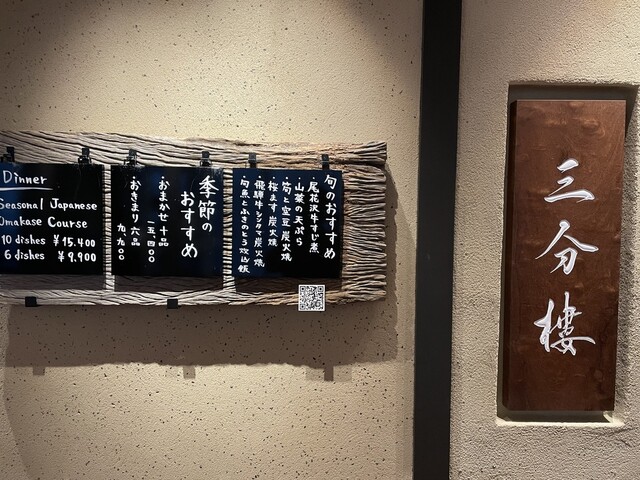 Dinner
Seasonal Japanese
Omakase Course
10 dishes ¥15.400
6 dishes ¥9,900
季節の
おすすめ
・おまかせ十品
一五、四〇〇
・おきまり六品
九、九〇〇
旬のおすすめ
尾花沢牛すじ煮
・山菜の天ぷら
・筍と空豆炭火焼
・桜ます炭火焼
・飛騨牛シンタマ炭火焼
・旬魚とふきのとう炊込飯
三分樓